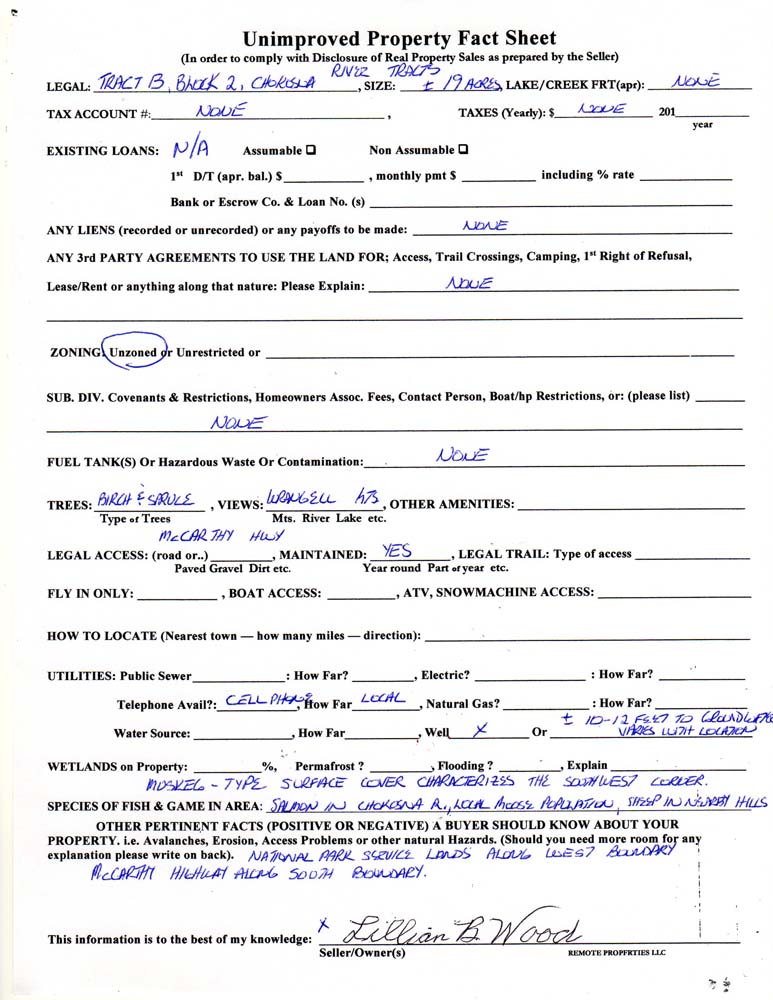 Unimproved Property Fact Sheet
(In order to comply with Disclosure of Real Property Sales as prepared by the Seller)
RIVER TRACTS
LEGAL: TRACT B, BLOCK 2, CHOKOSNA, SIZE: ± 19 ACRES, LAKE/CREEK FRT(apr): NONE
TAX ACCOUNT #: NONE, TAXES (Yearly): $ NONE 201____
year
EXISTING LOANS: N/A Assumable ☐ Non Assumable ☐
1st D/T (apr. bal.) $____, monthly pmt $____ including % rate ____
Bank or Escrow Co. & Loan No. (s) ____
ANY LIENS (recorded or unrecorded) or any payoffs to be made: NONE
ANY 3rd PARTY AGREEMENTS TO USE THE LAND FOR; Access, Trail Crossings, Camping, 1st Right of Refusal,
Lease/Rent or anything along that nature: Please Explain: NONE
ZONING: Unzoned or Unrestricted or ____
SUB. DIV. Covenants & Restrictions, Homeowners Assoc. Fees, Contact Person, Boat/hp Restrictions, or: (please list) ____
NONE
FUEL TANK(S) Or Hazardous Waste Or Contamination: NONE
TREES: BIRCH & SPRUCE, VIEWS: WRANGELL, OTHER AMENITIES: ____
Type of Trees Mts. River Lake etc.
McCARTHY HWY
LEGAL ACCESS: (road or..)____, MAINTAINED: YES, LEGAL TRAIL: Type of access ____
Paved Gravel Dirt etc. Year round Part of year etc.
FLY IN ONLY: ____, BOAT ACCESS: ____, ATV, SNOWMACHINE ACCESS: ____
HOW TO LOCATE (Nearest town — how many miles — direction): ____
UTILITIES: Public Sewer____: How Far? ____, Electric? ____: How Far? ____
Telephone Avail?: CELL PHONE, How Far LOCAL, Natural Gas? ____: How Far? ____
± 10-12 FEET TO GROUNDWATER
Water Source: ____, How Far____, Well X Or VARIES WITH LOCATION
WETLANDS on Property: ____%, Permafrost ?____, Flooding ?____, Explain ____
MUSKEG - TYPE SURFACE COVER CHARACTERIZES THE SOUTHWEST CORNER.
SPECIES OF FISH & GAME IN AREA: SALMON IN CHOKOSNA R., LOCAL MOOSE POPULATION, SHEEP IN NEARBY HILLS
OTHER PERTINENT FACTS (POSITIVE OR NEGATIVE) A BUYER SHOULD KNOW ABOUT YOUR
PROPERTY. i.e. Avalanches, Erosion, Access Problems or other natural Hazards. (Should you need more room for any
explanation please write on back). NATIONAL PARK SERVICE LANDS ALONG WEST BOUNDARY
McCARTHY HIGHWAY ALONG SOUTH BOUNDARY.
This information is to the best of my knowledge: X Lillian B. Wood
Seller/Owner(s) REMOTE PROPERTIES LLC